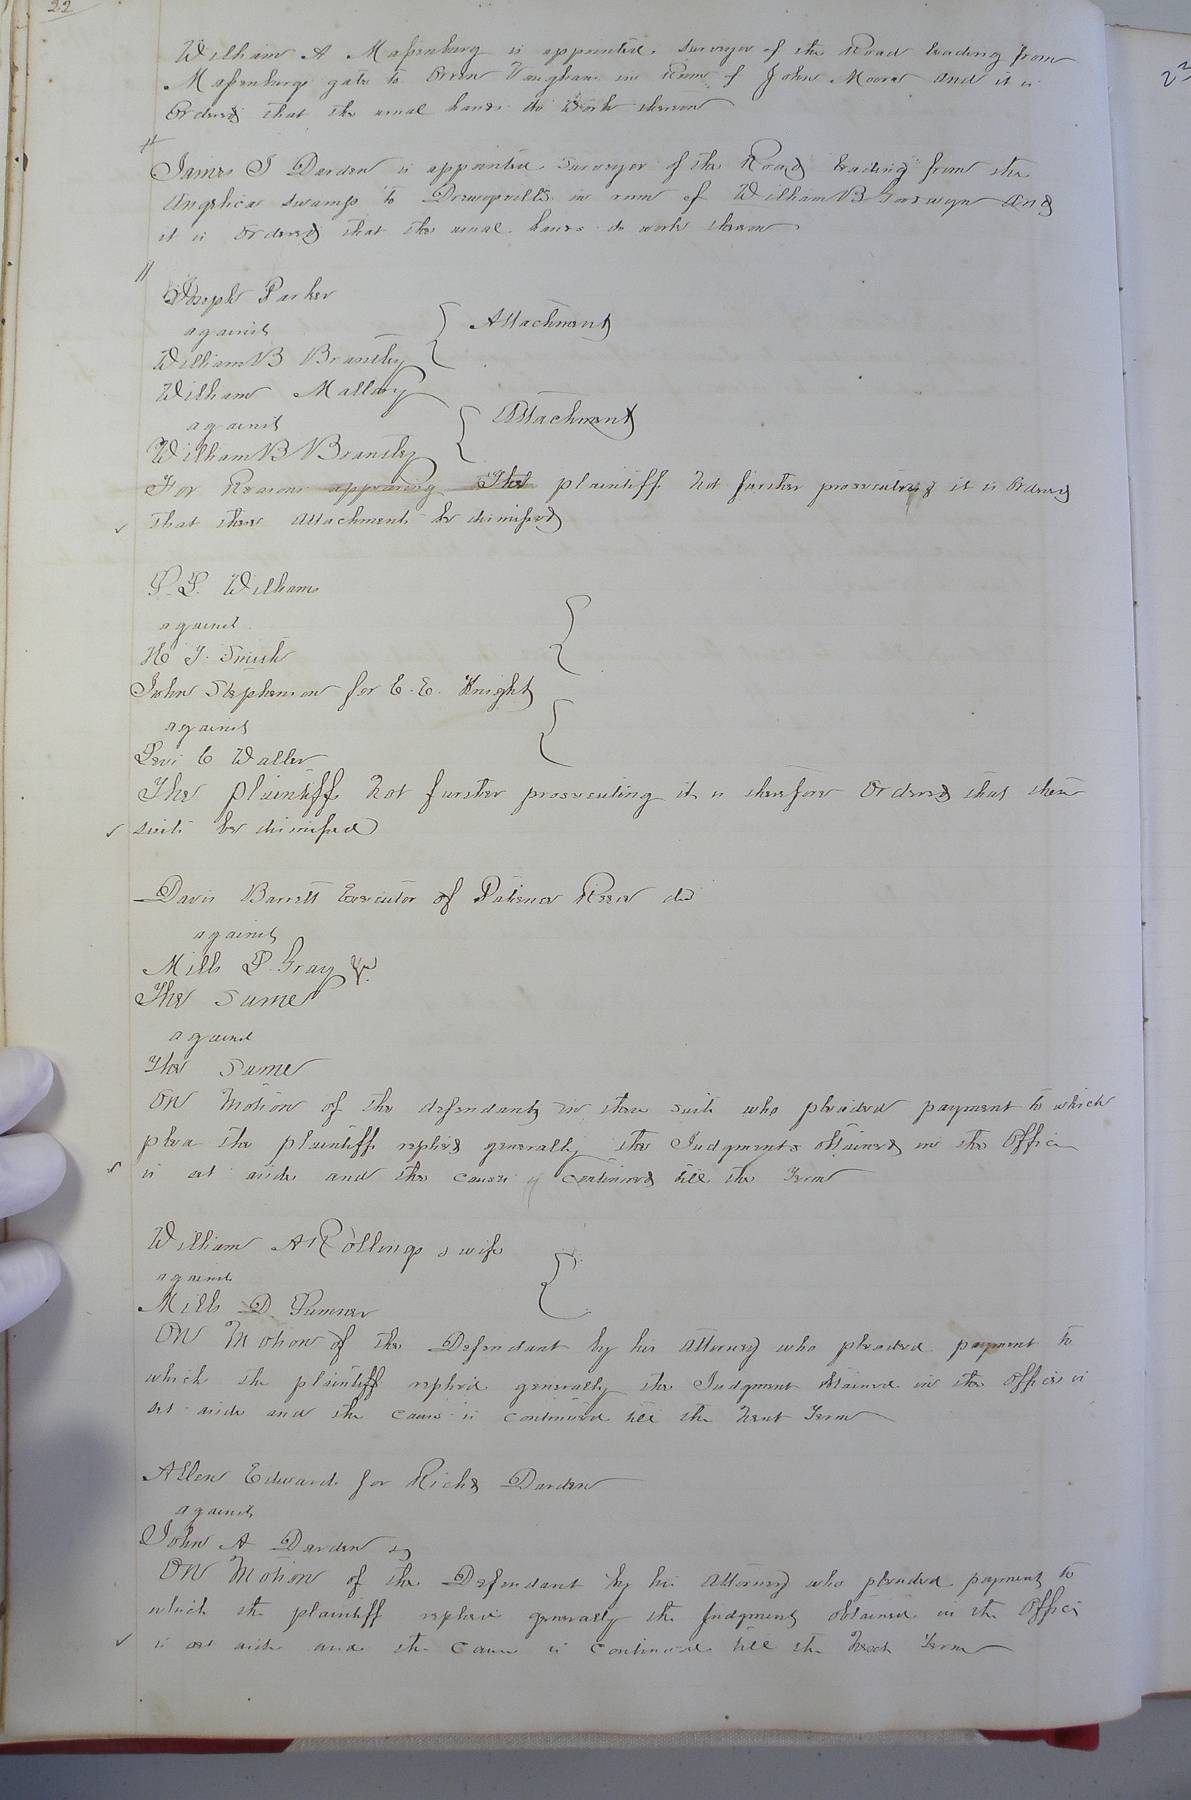 22
William A Massenburg is appointed surveyor of the Road leading from
Massenburgs gate to Orren Vaughans in Room of John Moore and it is
Ordered that the usual hands do work thereon
James J Darden is appointed surveyor of the Road leading from the
Angelica swamp to Drewryville in room of William B Goodwyn and
it is Ordered that the usual hands do work thereon
Joseph Parker
against
William B Brantley
Attachment
William Mallory
against
William B Brantley
Attachment
For Reasons appearing The plaintiff not further prosecuting it is Ordered
that these Attachments be dismissed
P. P. Williams
against
H. J. Smith
John Stephenson for E. E. Knight
against
Levi C Waller
The plaintiff not further prosecuting it is therefore Ordered that these
suits be dismissed
Davis Barrett Executor of Patience Reese decd
against
Mills P. Gray &c.
The same
against
The same
On Motion of the defendants in these suits who pleaded payment to which
plea the plaintiff replied generally the Judgments obtained in the Office
is set aside and the causes is continued till the Term
William A Rollings & wife
against
Mills D Sumner
On Motion of the Defendant by his Attorney who pleaded payment to
which the plaintiff replied generally the Judgment obtained in the Office is
set aside and the cause is continued till the next Term
Allen Edwards for Richd Darden
against
John A Darden
On Motion of the Defendant by his Attorney who pleaded payment to
which the plaintiff replied generally the Judgment obtained in the Office
is set aside and the cause is continued till the Next Term